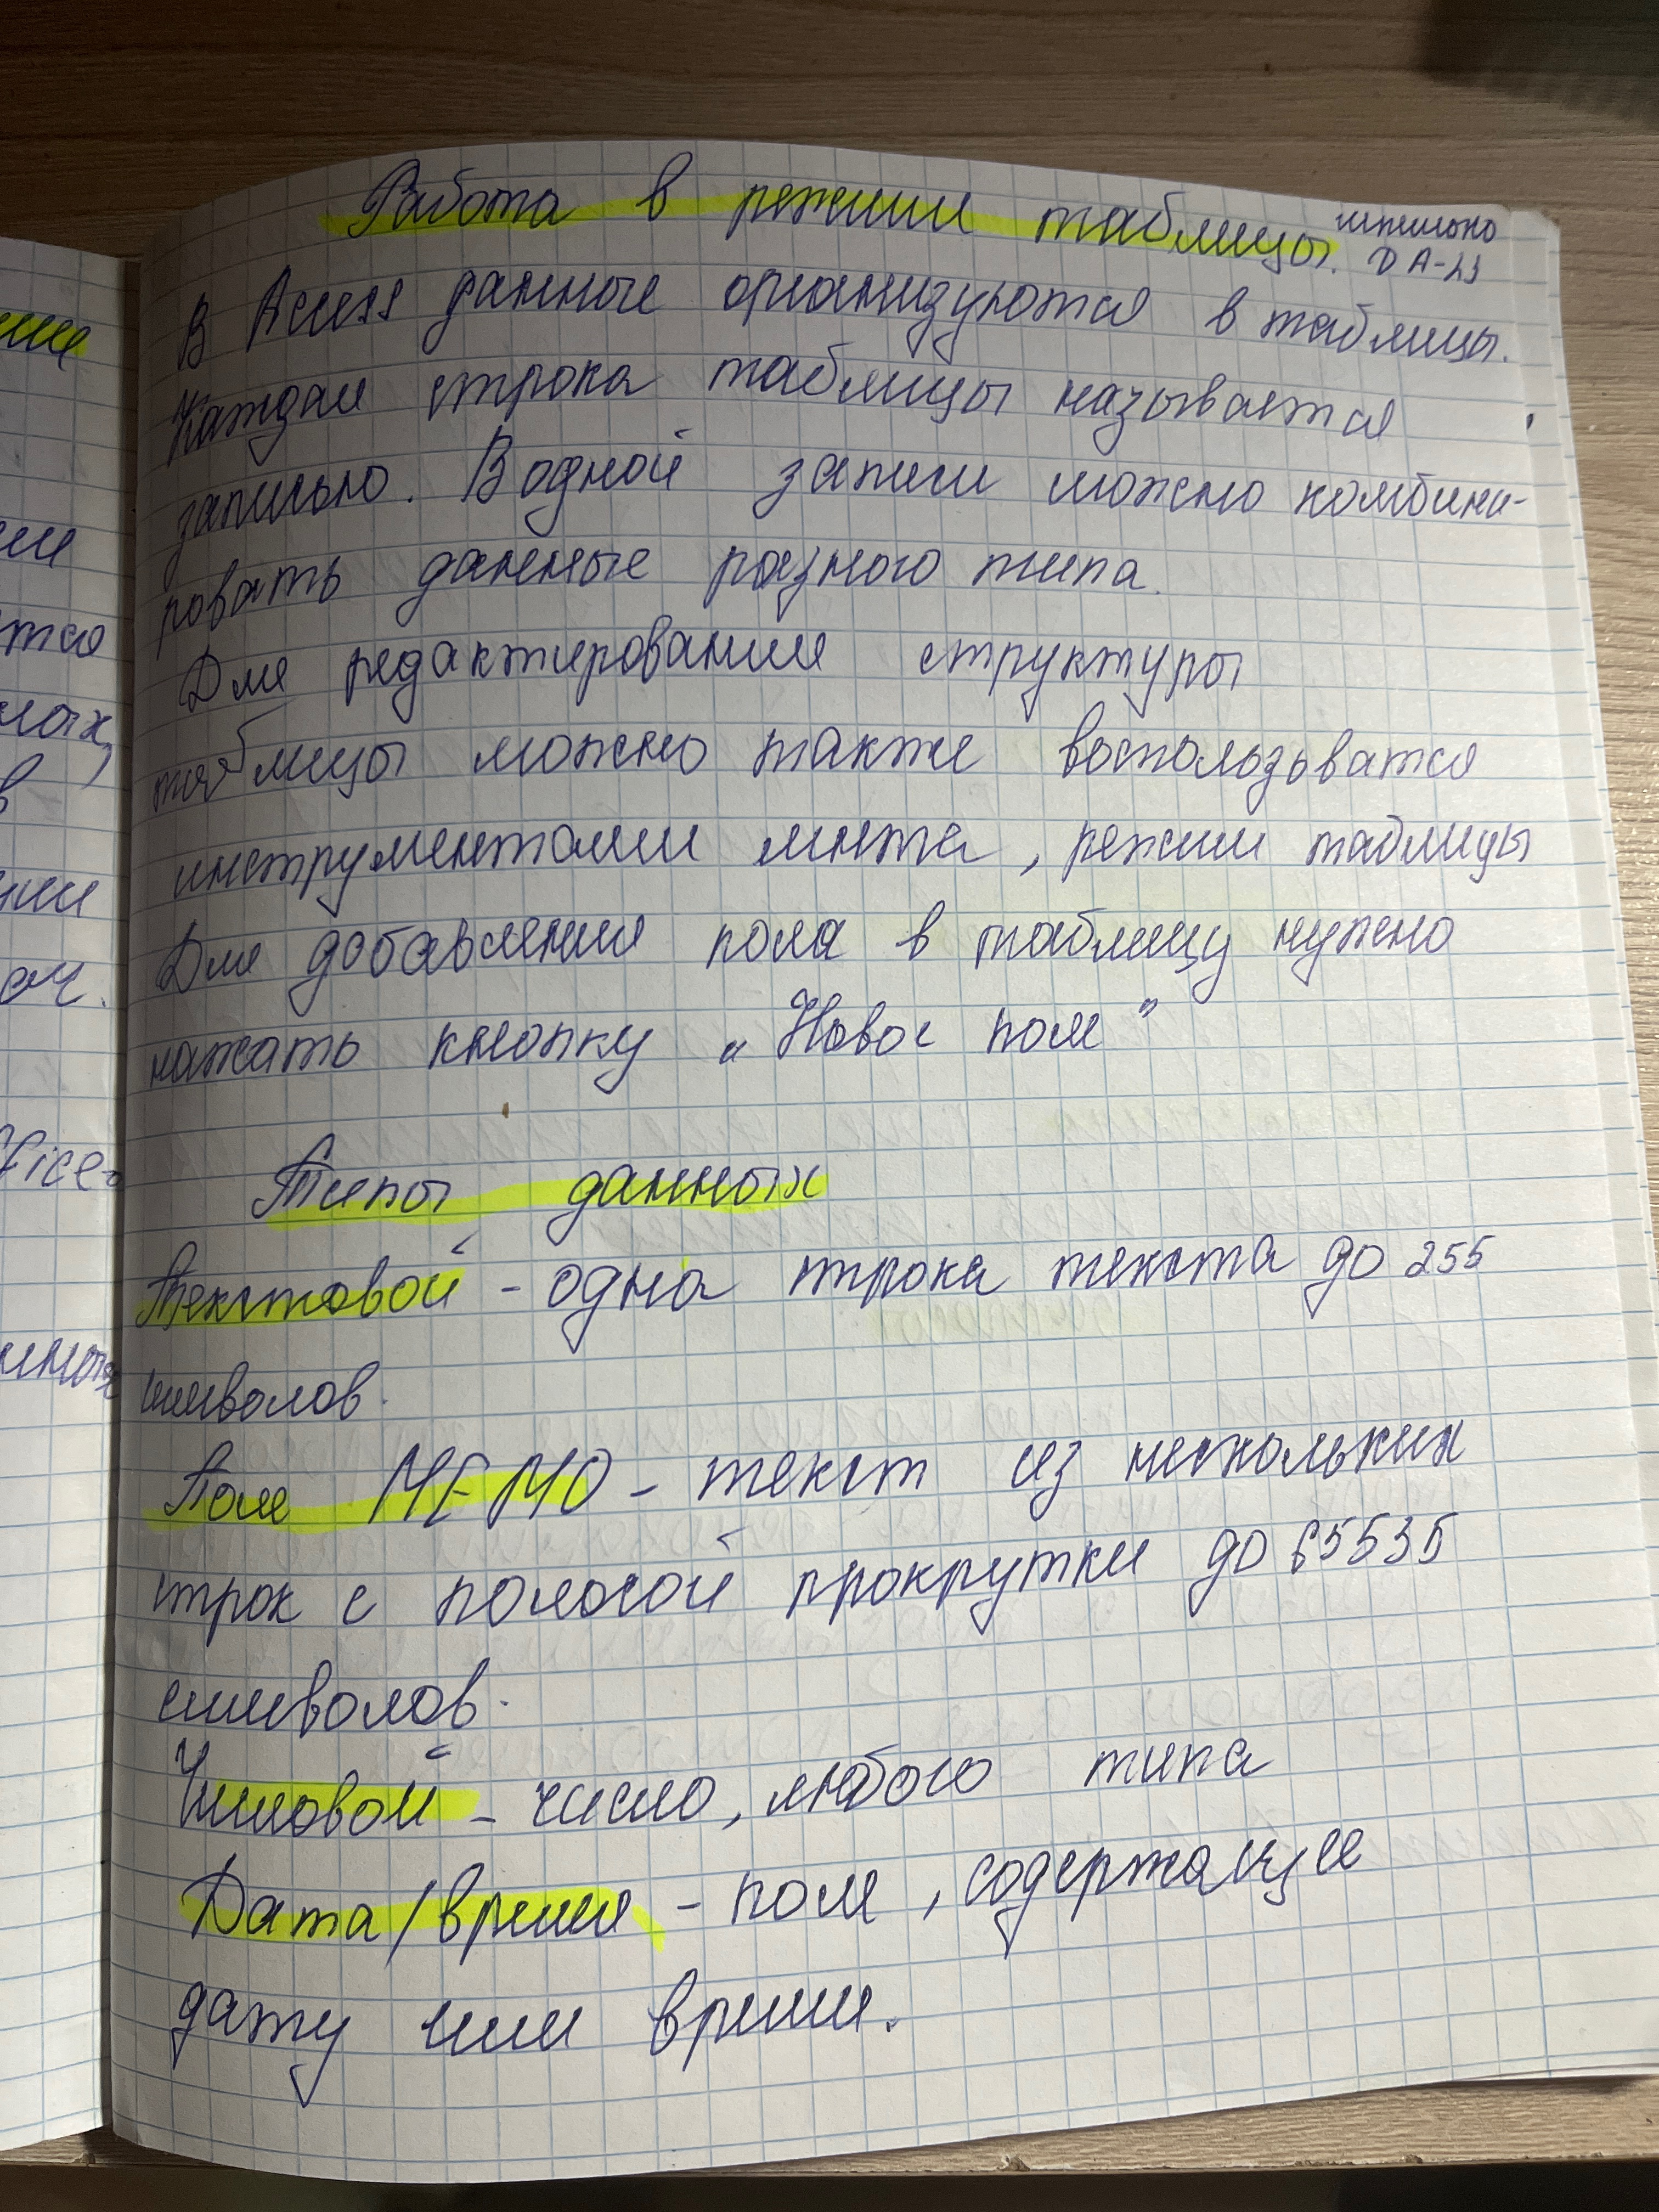 Работа в режиме таблицы.
ДА-23
В Access данные организуются в таблицы.
Каждая строка таблицы называется
записью. В одной записи можно комбини-
ровать данные разного типа.
Для редактирования структуры
таблицы можно также воспользватся
инструментами лнта, режим таблицы
Для добавления поля в таблицу нужно
нажать кнопку "Новое поле"
Типы данных
Текстовой - одна строка текста до 255
символов.
Поле МЕМО - текст из нескольких
строк с полосой прокрутки до 65535
символов.
Числовой - число, любого типа
Дата/время - поле, содержащее
дату или время.
ние
ии
тся
ных,
в
нии
ач.
ffice-
нных